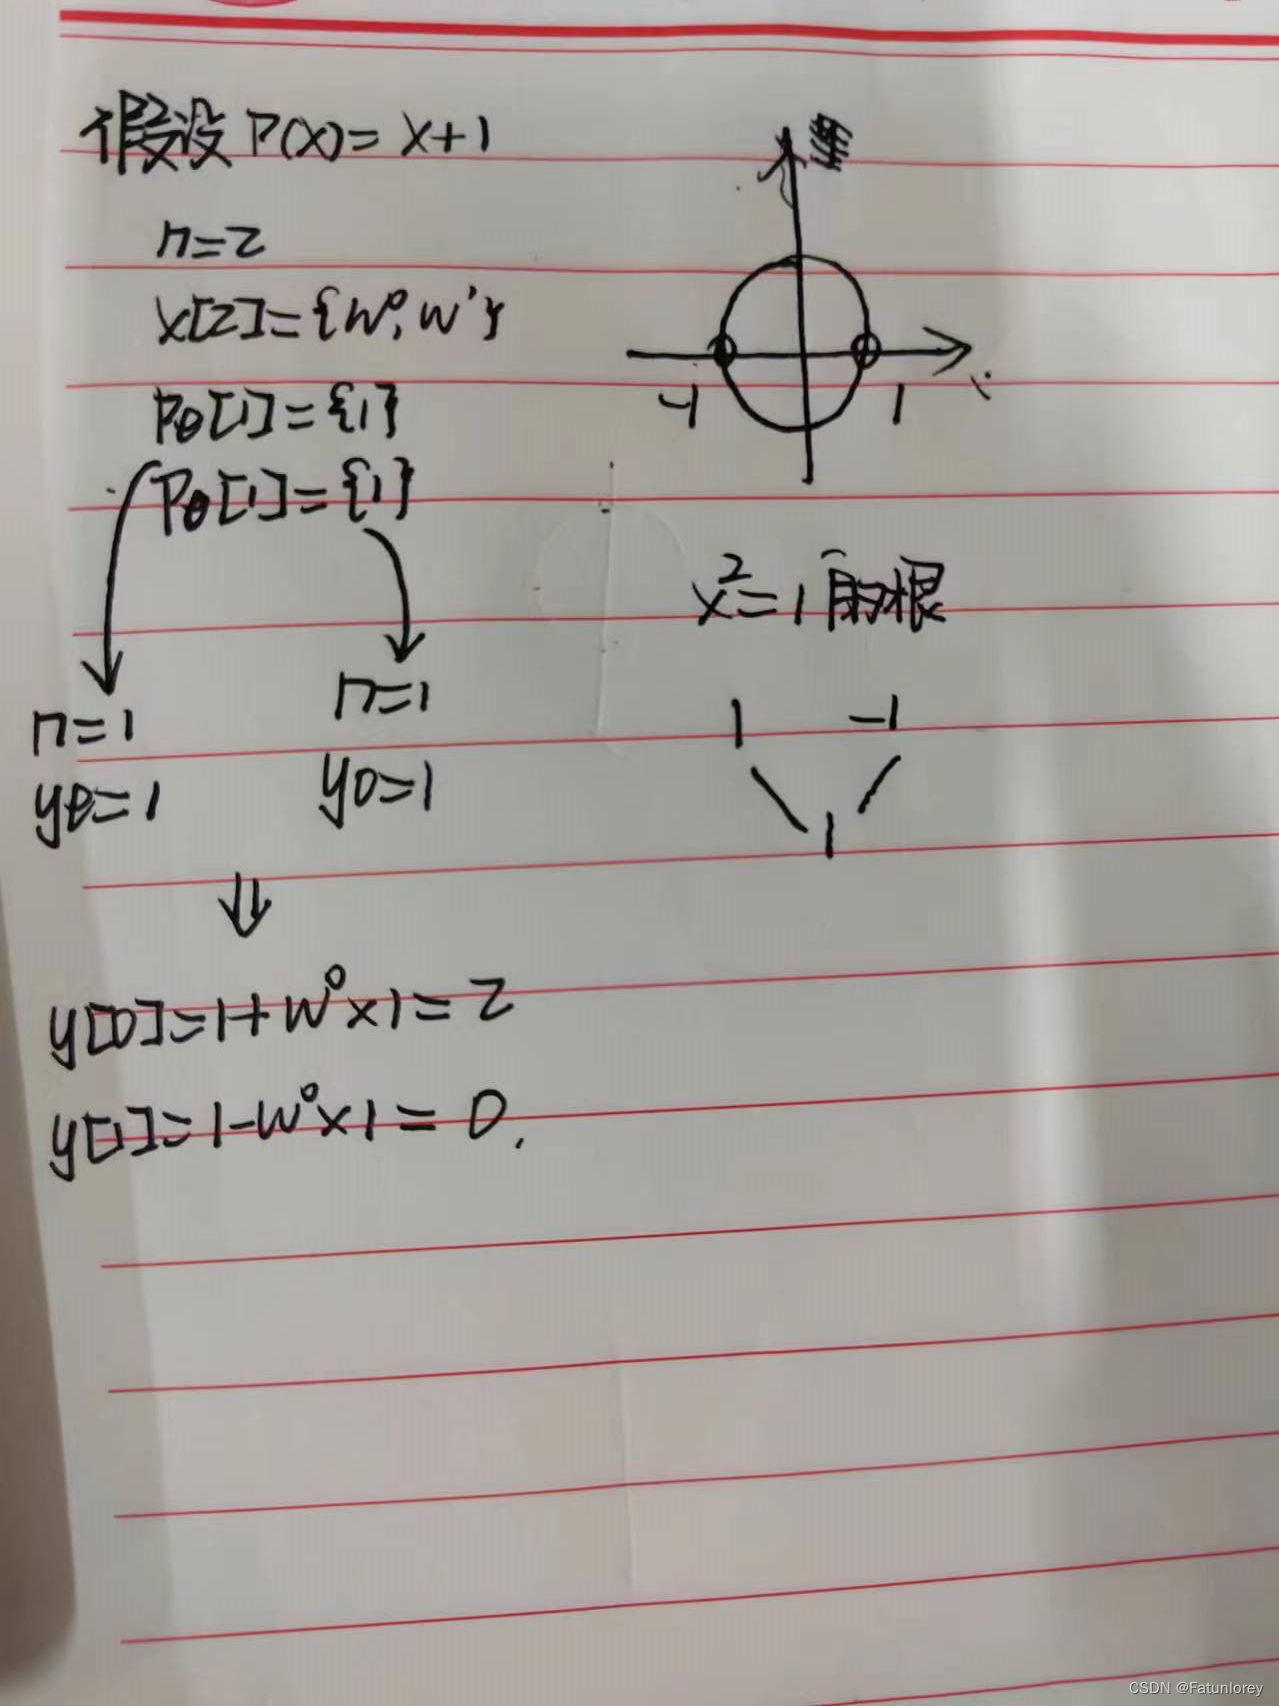 假设 P(x)=x+1
n=2
x[2]={w⁰,w¹}
Pe[1]={1}
Po[1]={1}
n=1
ye=1
n=1
yo=1
⇓
y[0]=1+w⁰×1=2
y[1]=1-w⁰×1=0.
-1
1
x²=1的根
1 -1
1
CSDN @Fatunlorey